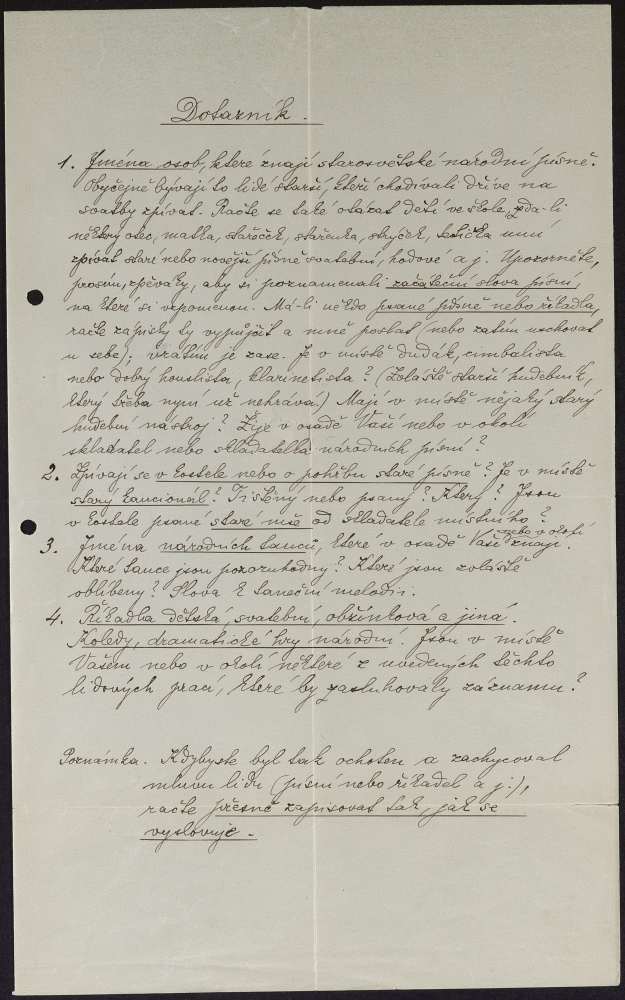 Dotazník.
1. Jména osob, které znají starosvětské národní písně.
Obyčejně bývají to lidé starší, kteří chodívali dříve na
svatby zpívat. Račte se také otázat dětí ve škole, zda-li
některý otec, matka, stařeček, stařenka, strýček, tetička umí
zpívat staré nebo novější písně svatební, hodové a j. Upozorněte,
prosím, zpěváky, aby si poznamenali začáteční slova písní,
na které si vzpomenou. Má-li někdo psané písně nebo říkadla,
račte zápisky ty vypůjčit a mně poslat (nebo zatím uschovat
u sebe); vrátím je zase. Je v místě dudák, cimbalista
nebo dobrý houslista, klarinetista? (Zvláště starší hudebník,
který třeba nyní už nehrává.) Mají v místě nějaký starý
hudební nástroj? Žije v osadě Vaší nebo v okolí
skladatel nebo skladatelka národních písní?
2. Zpívají se v kostele nebo o pohřbu staré písně? Je v místě
starý kancionál? Tištěný nebo psaný? Který? Jsou
v kostele psané staré mše od skladatele místního?
3. Jména národních tanců, které v osadě Vaší nebo v okolí znají.
Které tance jsou pozoruhodny? Které jsou zvláště
oblíbeny? Slova k taneční melodii.
4. Říkadla dětská, svatební, obžínková a jiná.
Koledy, dramatické hry národní. Jsou v místě
Vašem nebo v okolí některé z uvedených těchto
lidových prací, které by zasluhovaly záznamu?
Poznámka. Kdybyste byl tak ochoten a zachycoval
mluvu lidu (písní nebo říkadel a j.),
račte přesně zapisovat tak, jak se
vyslovuje.